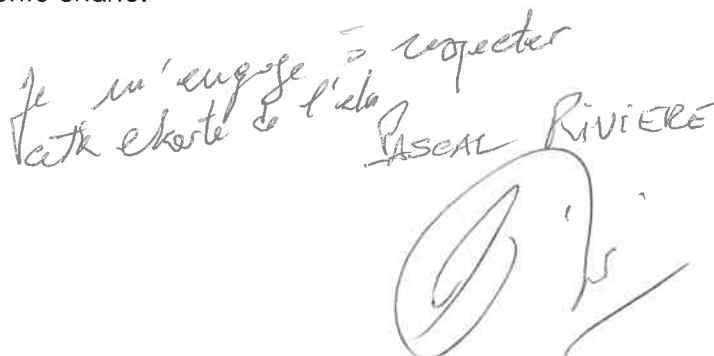 Je m'engage à respecter
cette charte de l'élu
PASCAL RIVIERE